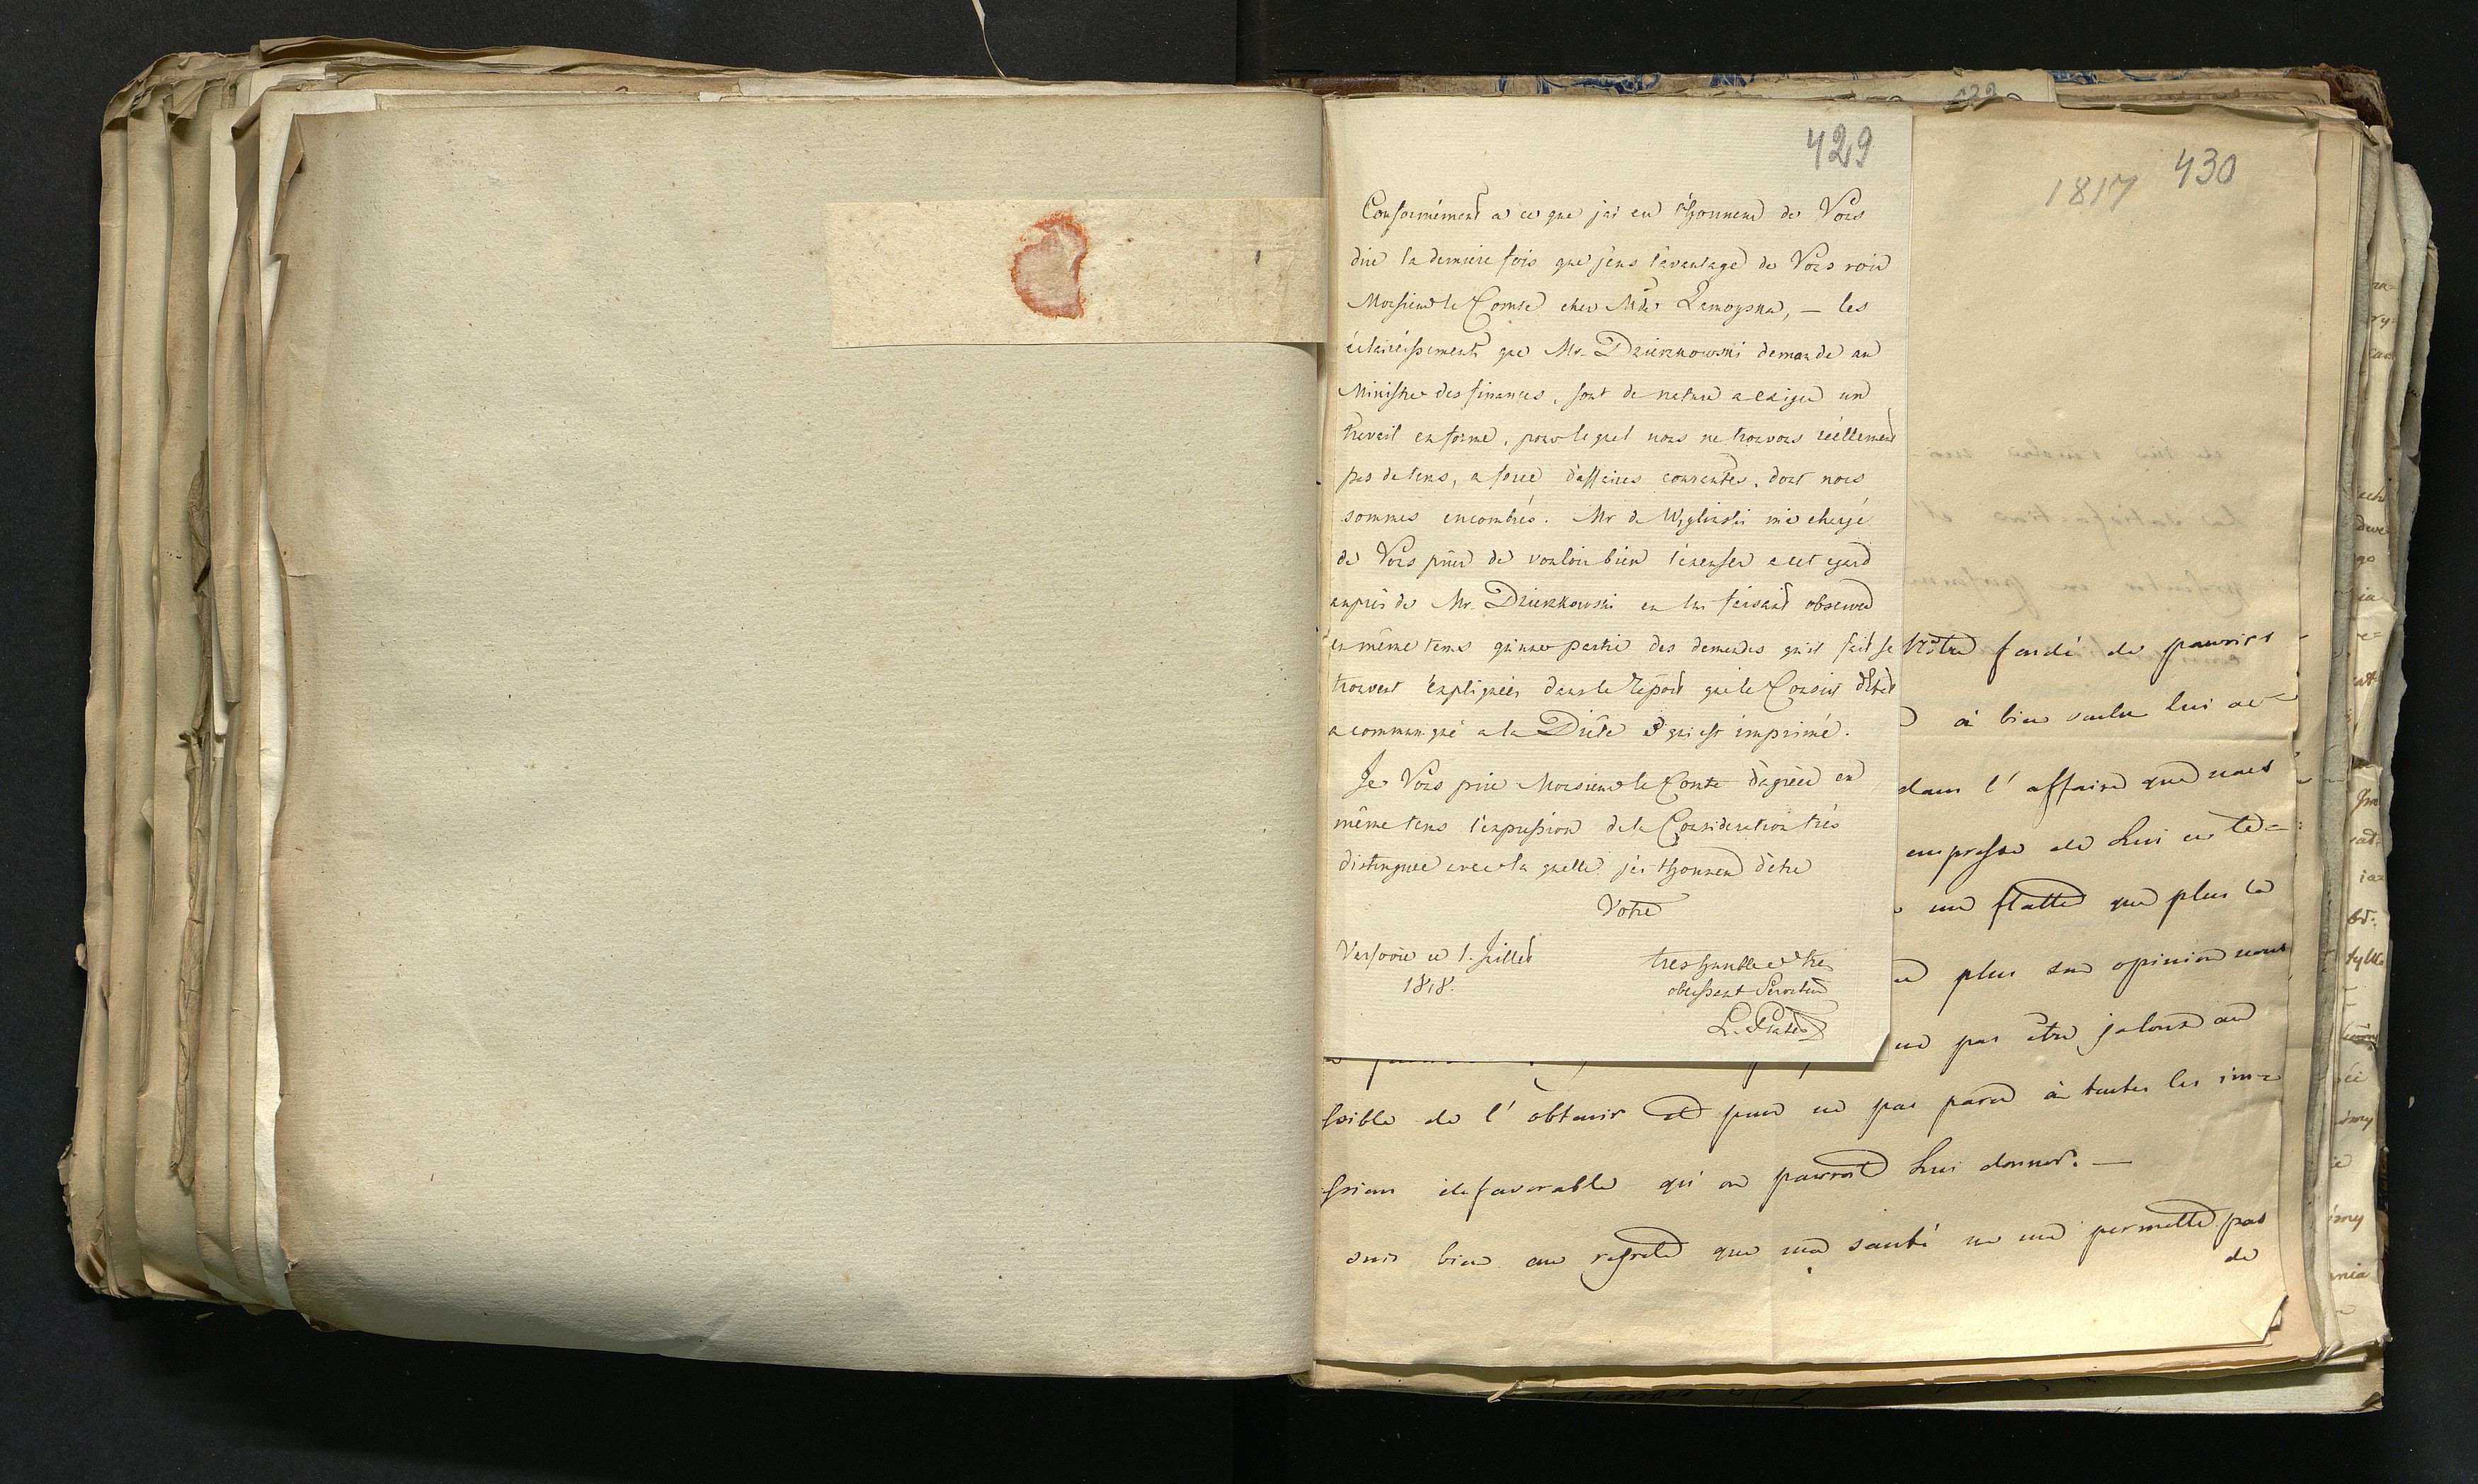 429
Conformément a ce que j'ai eu l'honneur de Vous
dire la derniere fois que j'eus l'avantage de Vous voir
Monsieur le Comte chez Mde Zamoyska, — les
éclaircissements que Mr. Dzierzkowski demande au
Ministre des finances, sont de nature a exiger un
travail en forme, pour le quel nous ne trouvons réellement
pas de tems, a force d'affaires courantes, dont nous
sommes encombrés. Mr de Węgleński m'a chargé
de Vous prier de vouloir bien l'excuser a cet egard
auprès de Mr. Dzierzkowski en lui faisant observer
en même tems qu'une partie des demandes qu'il fait se
trouvent expliquées dans le Raport que le Conseil d'Etat
a communiqué a la Diète & qui est imprimé.
Je Vous prie Monsieur le Comte d'agréer en
même tems l'expression de la Consideration très
distinguée avec la quelle j'ai l'honneur d'être
Votre
Varsovie ce 1. Juillet
1818.
tres humble et tres
obeissant Serviteur
L. Plater
1817
430
Nôtre fondé de pouvoirs
à bien voulu lui ac-
dans l'affaire que nous
empresse de Lui en te=
me flatte que plus la
plus son opinion nous
ne pas être jaloux au
ssible de l'obtenir et pour ne pas parer à toutes les im=
ssions défavorable qu'on pourroit Lui donner. —
suis bien au regret que ma santé ne me permette pas
de